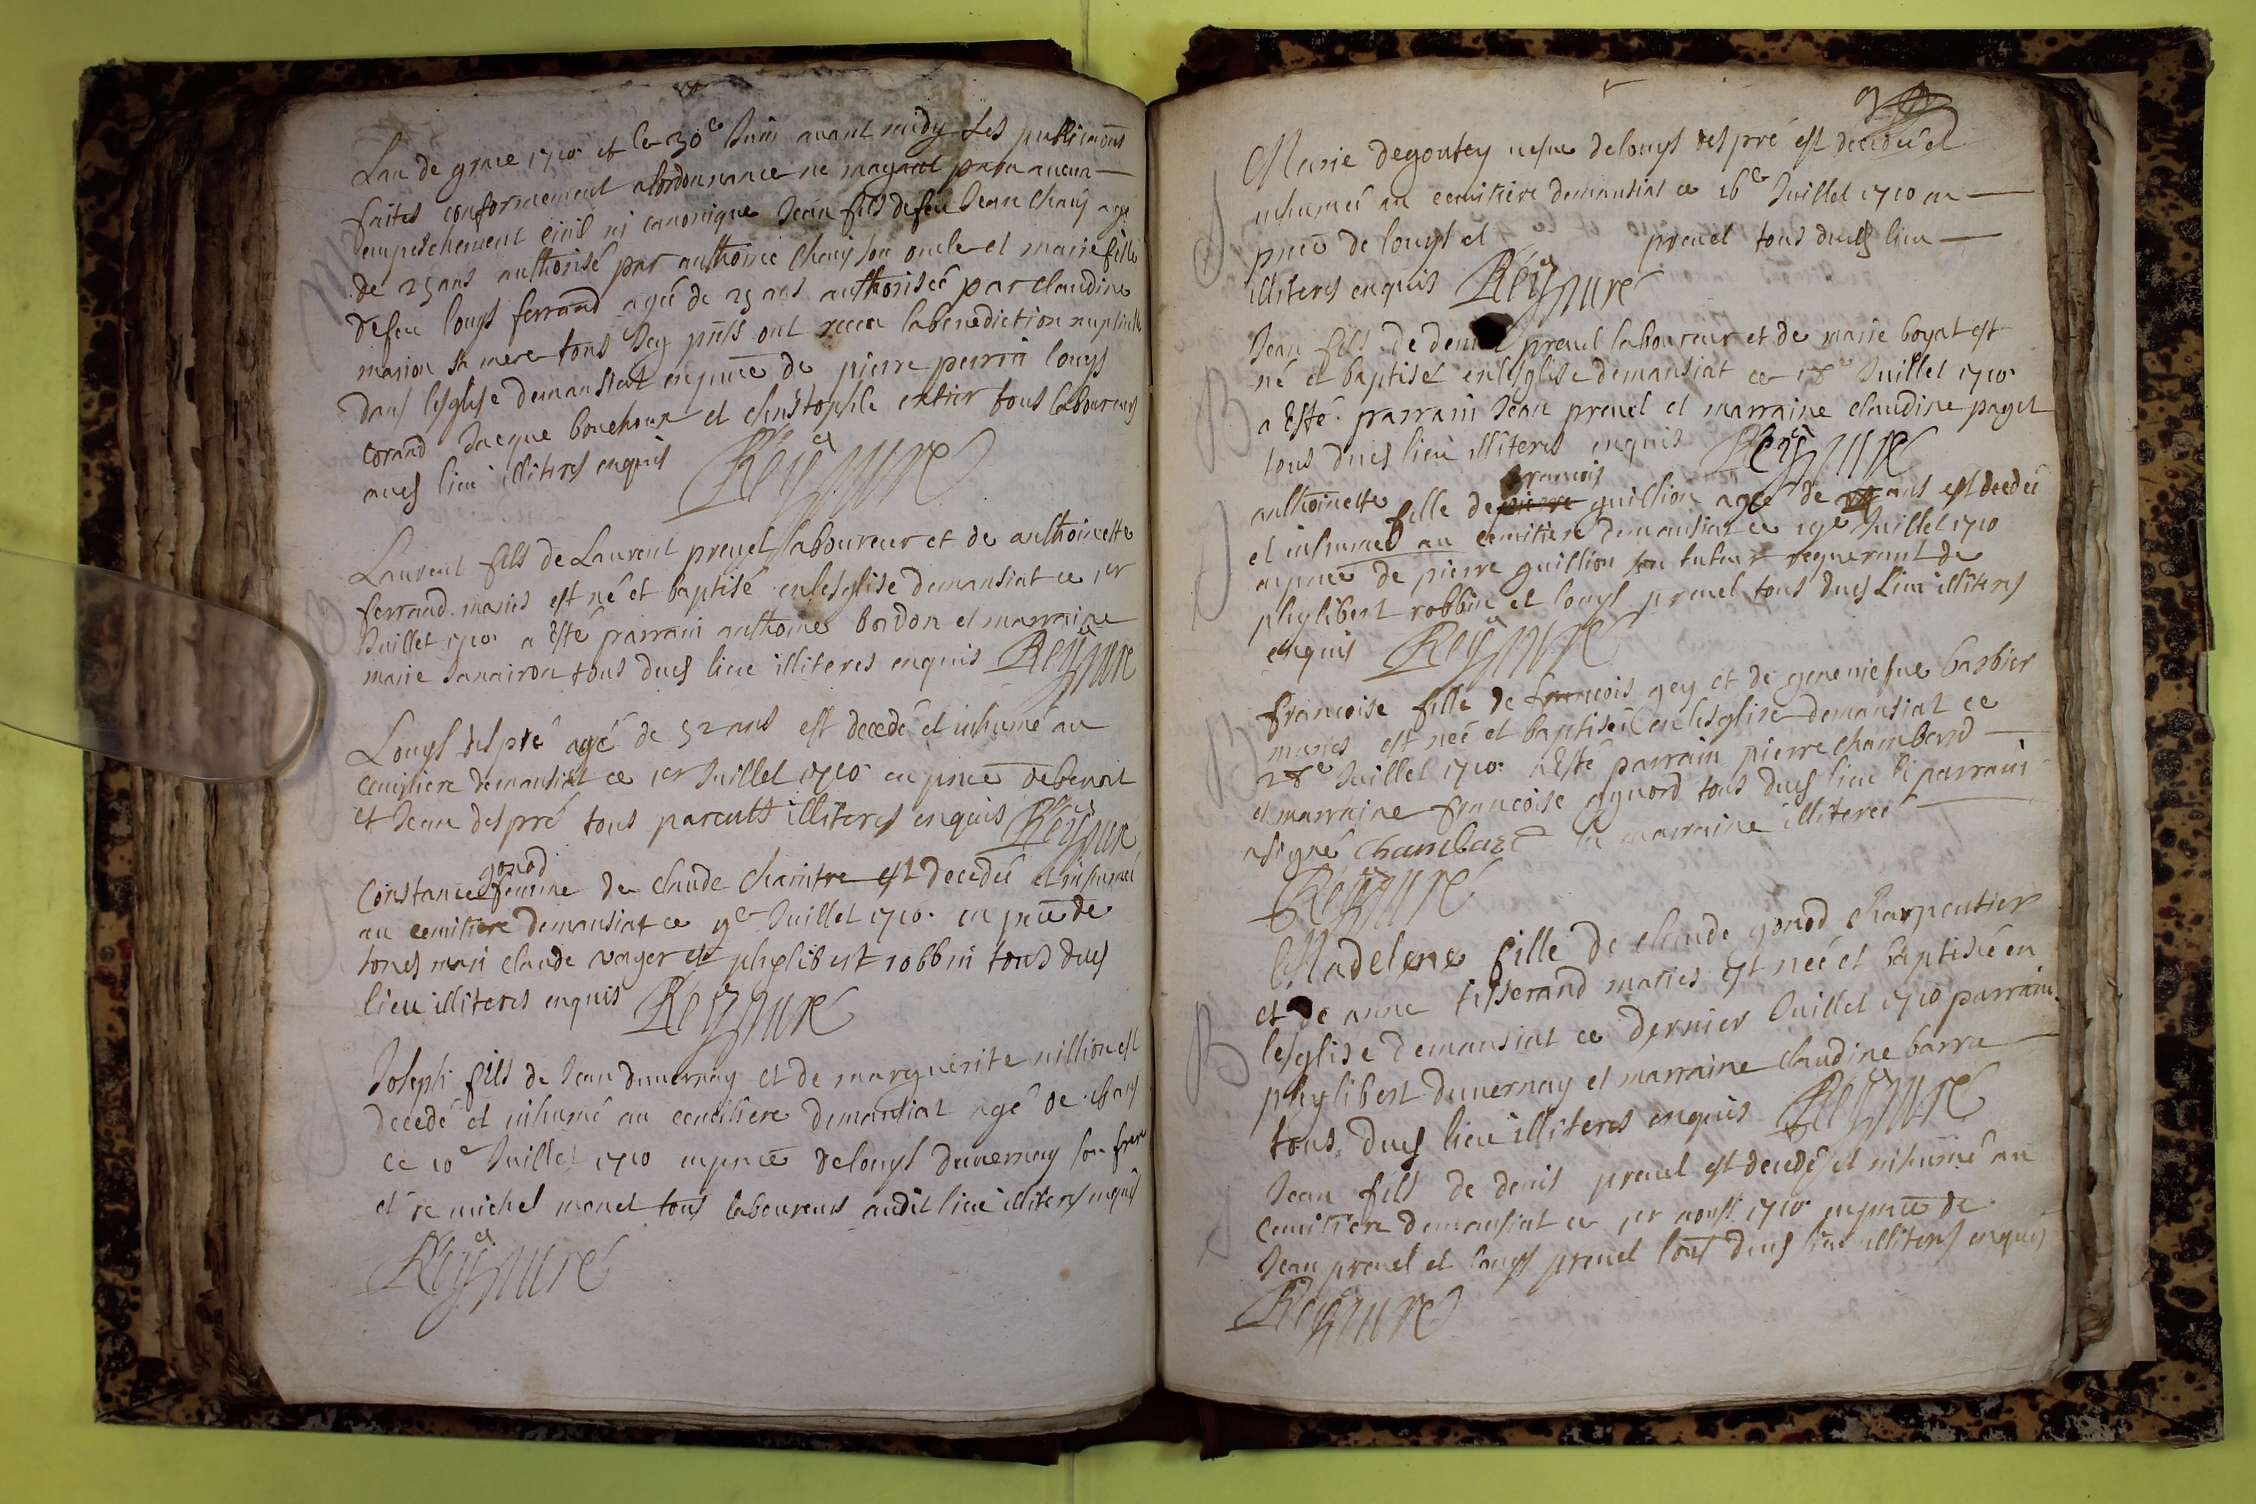 Lan de grace 1710 et le 30e Juin avant midy les publications
faites conformement alordonnance ne mayant paru aucun
empeschement civil ni canonique Jean fils defeu Jean Chany agé
de 25 ans authorisé par anthoine Chany son oncle et marie fille
defeu louys ferrand agée de 25 ans authorisée par claudine
marion sa mere tous icy pnts ont receu la benediction nuptialle
dans lesglise demansiat enpnce de pierre perrin louys
corand Jacque bouchoux et christophle entier tous laboureurs
aud lieu illiteres enquis Reÿ cure
M
Laurent fils de Laurent prevel laboureur et de anthoinette
ferrand maries est né et baptisé enlesglise demansiat ce 1er
Juillet 1710 a Esté parrain anthoine bordon et marraine
marie Janairon tous dud lieu illiteres enquis Reÿ cure
B
Louys despré agé de 52 ans est decedé et inhumé au
cemitiere demansiat ce 1er Juillet 1710 en pnce debenoit
et Jean despré tous parents illiteres enquis Reÿ cure
gonod
Constance femme de claude Chaintre est decedée et inhumée
au cemitiere demansiat ce 9e Juillet 1710 en pnce de
sond mari claude voyer et phylibert robbin tous dud
lieu illiteres enquis Reÿ cure
Joseph fils de Jean duvernay et de marguerite nillion est
decedé et inhumé au cemitiere demansiat agé de 16 ans
ce 10e Juillet 1710 enpnce delouys duvernay son frere
et de michel monet tous laboureurs audit lieu illiteres enquis
Reÿ cure
Marie degoutey vefve delouys despré est decedée et
inhumée au cemitiere demansiat ce 16e Juillet 1710 en
pnce de louys et prevel tous dud lieu
illiteres enquis Reÿ cure
Jean fils de denis prevel laboureur et de marie boyat est
né et baptisé enlesglise demansiat ce 18e Juillet 1710
a Esté parrain Jean prevel et marraine claudine paget
tous dud lieu illiteres enquis Reÿ cure
B
francois
anthoinette fille de pierre guillion agée de ans est decedée
et inhumée au cemitiere demansiat ce 19e Juillet 1710
enpnce de pierre guillion son tuteur requerant de
phylibert robbin et louys prevel tous dud Lieu illiteres
enquis Reÿ cure
francoise fille de francois gey et de geneviefve barbier
maries est née et baptisée enlesglise demansiat ce
28e Juillet 1710 a Esté parrain pierre Chambard
et marraine francoise aynord tous dud lieu le parrain
asigné Chambard la marraine illiterée
Reÿ cure
B
Madelene fille de claude gonod charpentier
et de anne tisserand maries est née et baptisée en
lesglise demansiat ce dernier Juillet 1710 parrain
phylibert duvernay et marraine claudine barra
tous dud lieu illiteres enquis Reÿ cure
B
Jean fils de denis prevel est decedé et inhumé au
cemitiere demansiat ce 1er aoust 1710 enpnce de
Jean prevel et louys prevel tous dud lieu illiteres enquis
Reÿ cure